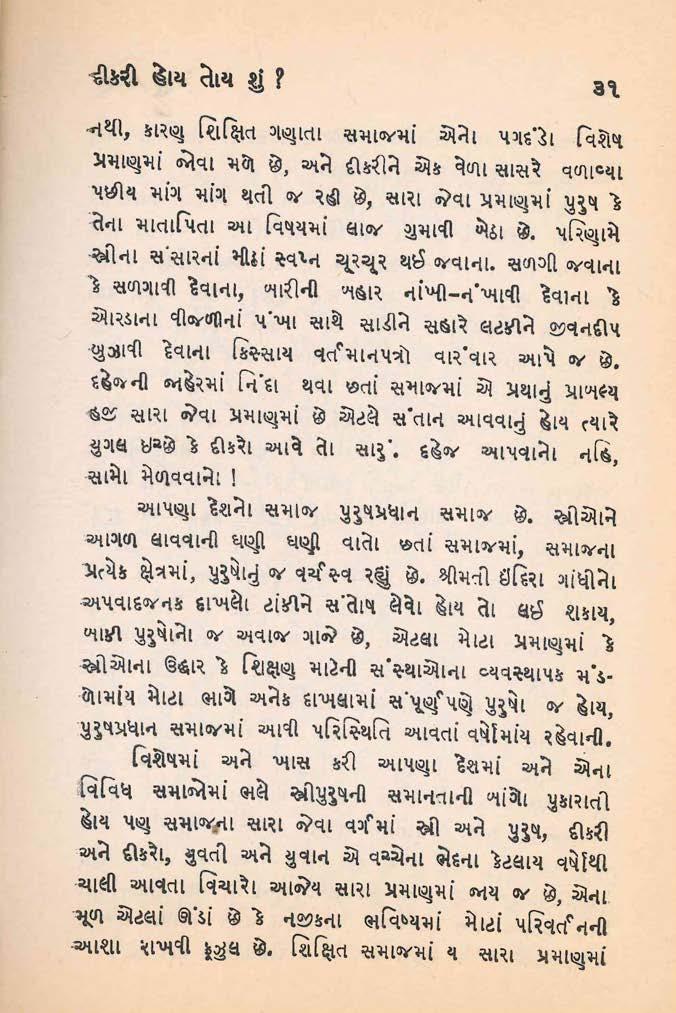 દીકરી હોય તોય શું ?
૩૧
નથી, કારણ શિક્ષિત ગણાતા સમાજમાં એનો પગદંડો વિશેષ
પ્રમાણમાં જોવા મળે છે, અને દીકરીને એક વેળા સાસરે વળાવ્યા
પછીય માંગ માંગ થતી જ રહી છે, સારા જેવા પ્રમાણમાં પુરુષ કે
તેના માતાપિતા આ વિષયમાં લાજ ગુમાવી બેઠા છે. પરિણામે
સ્ત્રીના સંસારનાં મીઠાં સ્વપ્ન ચૂરચૂર થઈ જવાના. સળગી જવાના
કે સળગાવી દેવાના, બારીની બહાર નાંખી–નંખાવી દેવાના કે
ઓરડાના વીજળીનાં પંખા સાથે સાડીને સહારે લટકીને જીવનદીપ
બુઝાવી દેવાના કિસ્સાય વર્તમાનપત્રો વારંવાર આપે જ છે.
દહેજની જાહેરમાં નિંદા થવા છતાં સમાજમાં એ પ્રથાનું પ્રાબલ્ય
હજી સારા જેવા પ્રમાણમાં છે એટલે સંતાન આવવાનું હોય ત્યારે
યુગલ ઇચ્છે કે દીકરો આવે તો સારું. દહેજ આપવાનો નહિ,
સામો મેળવવાનો !
આપણા દેશનો સમાજ પુરુષપ્રધાન સમાજ છે. સ્ત્રીઓને
આગળ લાવવાની ઘણી ઘણી વાતો છતાં સમાજમાં, સમાજના
પ્રત્યેક ક્ષેત્રમાં, પુરુષોનું જ વર્ચસ્વ રહ્યું છે. શ્રીમતી ઇંદિરા ગાંધીનો
અપવાદજનક દાખલો ટાંકીને સંતોષ લેવો હોય તો લઈ શકાય,
બાકી પુરુષોનો જ અવાજ ગાજે છે, એટલા મોટા પ્રમાણમાં કે
સ્ત્રીઓના ઉદ્ધાર કે શિક્ષણ માટેની સંસ્થાઓના વ્યવસ્થાપક મંડ-
ળોમાંય મોટા ભાગે અનેક દાખલામાં સંપૂર્ણપણે પુરુષો જ હોય,
પુરુષપ્રધાન સમાજમાં આવી પરિસ્થિતિ આવતાં વર્ષોમાંય રહેવાની.
વિશેષમાં અને ખાસ કરી આપણા દેશમાં અને એના
વિવિધ સમાજોમાં ભલે સ્ત્રીપુરુષની સમાનતાની બાંગો પુકારાતી
હોય પણ સમાજના સારા જેવા વર્ગમાં સ્ત્રી અને પુરુષ, દીકરી
અને દીકરો, યુવતી અને યુવાન એ વચ્ચેના ભેદના કેટલાય વર્ષોથી
ચાલી આવતા વિચારો આજેય સારા પ્રમાણમાં જાય જ છે, એના
મૂળ એટલાં ઊંડાં છે કે નજીકના ભવિષ્યમાં મોટાં પરિવર્તનની
આશા રાખવી ફૂઝુલ છે. શિક્ષિત સમાજમાં ય સારા પ્રમાણમાં